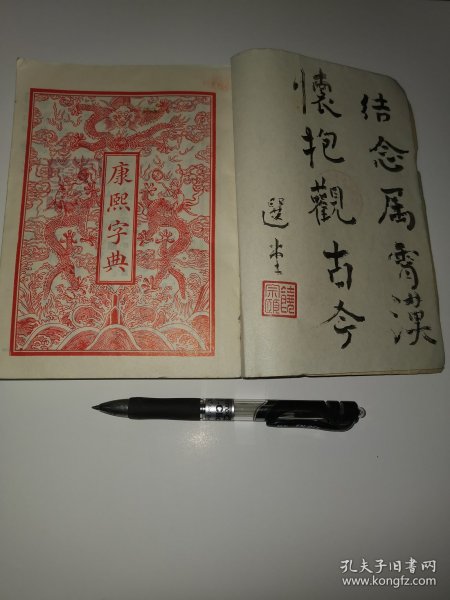 康熙字典
結念属霄漢
懷抱觀古今
選堂
饒宗頤
孔夫子旧书网
www.kongfz.com